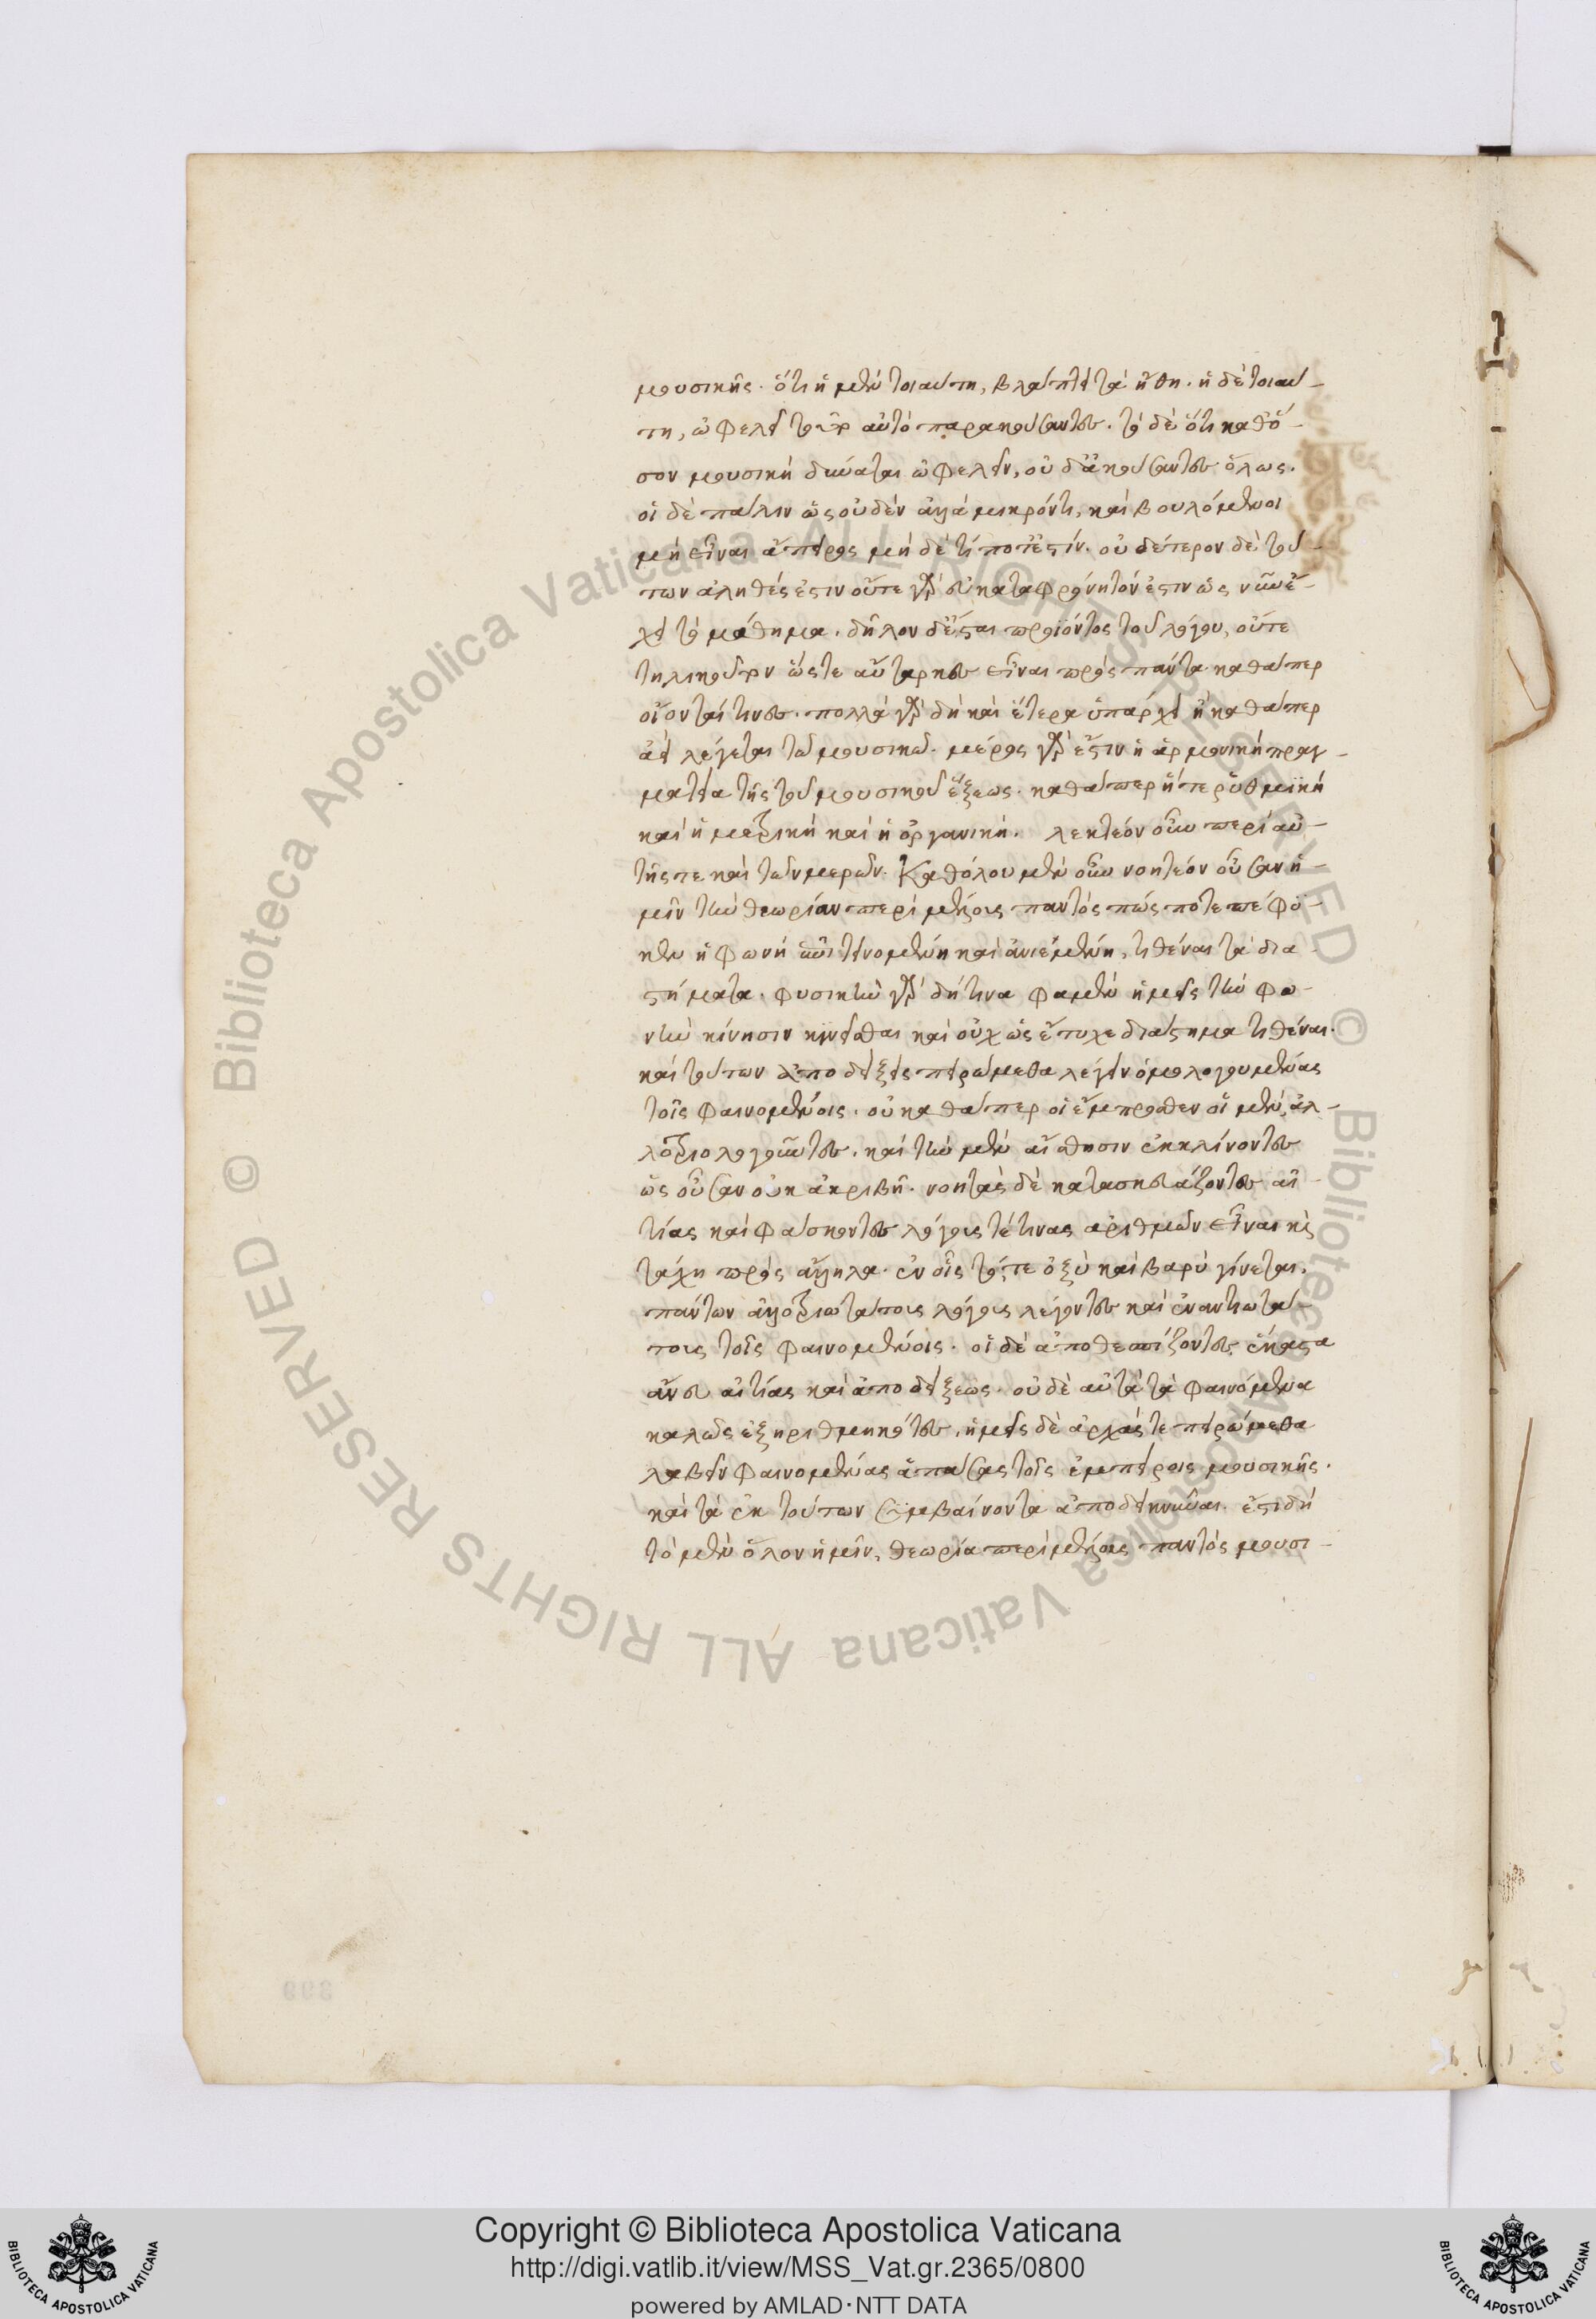 μουσικῆς. ὅτι ἡ μὲν τοιαύτη, βλάπτει τὰ ἤθη. ἡ δὲ τοιαύ-
τη, ὠφελεῖ αὐτὸ παρακούσαντες. τὸ δὲ ὅτι καθό-
σον μουσικὴ δύναται ὠφελεῖν, οὐδ' ἀκούσαντες ὅλως.
οἱ δὲ πάλιν ὡς οὐδὲν ἀλλὰ μικρόν τι, καὶ βουλόμενοι
μὴ εἶναι ἄπειρος μὴ δὲ τί ποτ' ἐστίν. οὐδέτερον δὲ τού-
των ἀληθές ἐστιν οὔτε γὰρ εὐκαταφρόνητόν ἐστιν ὡς νῦν ἔ-
χει τὸ μάθημα. δῆλον δ' ἔσται προϊόντος τοῦ λόγου, οὔτε
τηλικοῦτον ὥστε αὔταρκες εἶναι πρὸς πάντα καθάπερ
οἴονταί τινες. πολλὰ γὰρ δὴ καὶ ἕτερα ὑπάρχει ἢ καθάπερ
ἀεὶ λέγεται τῷ μουσικῷ. μέρος γάρ ἐστιν ἡ ἁρμονικὴ πραγ-
ματεία τῆς τοῦ μουσικοῦ ἕξεως. καθάπερ ἥ τε ῥυθμϊκὴ
καὶ ἡ μετρικὴ καὶ ἡ ὀργανική. λεκτέον οὖν περὶ αὐ-
τῆς τε καὶ τῶν μερῶν. Καθόλου μὲν οὖν νοητέον οὖσαν ἡ-
μῖν τὴν θεωρίαν περὶ μέλους παντὸς πῶς ποτε πέφϋ-
κεν ἡ φωνὴ ἐπιτεινομένη καὶ ἀνιεμένη, τιθέναι τὰ δια-
στήματα. φυσικὴν γὰρ δή τινα φαμὲν ἡμεῖς τὴν φω-
νὴν κίνησιν κινεῖσθαι καὶ οὐχ ὡς ἔτυχε διάστημα τιθέναι.
καὶ τούτων ἀποδείξεις πειρώμεθα λέγειν ὁμολογουμένας
τοῖς φαινομένοις. οὐ καθάπερ οἱ ἔμπροσθεν οἱ μὲν, ἀλ-
λοτριολογοῦντες. καὶ τὴν μὲν αἴσθησιν ἐκκλίνοντες
ὡς οὖσαν οὐκ ἀκριβῆ. νοητὰς δὲ κατασκευάζοντες αἰ-
τίας καὶ φάσκοντες λόγους τέ τινας ἀριθμῶν εἶναι καὶ
τάχη πρὸς ἄλληλα. ἐν οἷς τό, τε ὀξὺ καὶ βαρὺ γίνεται.
πάντων ἀλλοτριωτάτους λόγους λέγοντες καὶ ἐναντιωτά-
τους τοῖς φαινομένοις. οἱ δὲ ἀποθεσπίζοντες ἕκαστα
ἄνευ αἰτίας καὶ ἀποδείξεως. οὐδὲ αὐτὰ τὰ φαινόμενα
καλῶς ἐξηριθμηκότες. ἡμεῖς δὲ ἀρχάς τε πειρώμεθα
λαβεῖν φαινομένας ἁπάσας τοῖς ἐμπείροις μουσικῆς.
καὶ τὰ ἐκ τούτων συμβαίνοντα ἀποδεικνῦναι. ἔστι δὴ
τὸ μὲν ὅλον ἡμῖν, θεωρία περὶ μέλους παντὸς μουσι-
Copyright © Biblioteca Apostolica Vaticana
http://digi.vatlib.it/view/MSS_Vat.gr.2365/0800
powered by AMLAD·NTT DATA
BIBLIOTECA APOSTOLICA VATICANA
BIBLIOTECA APOSTOLICA VATICANA
© Biblioteca Apostolica Vaticana ALL RIGHTS RESERVED © Biblioteca Apostolica Vaticana ALL RIGHTS RESERVED